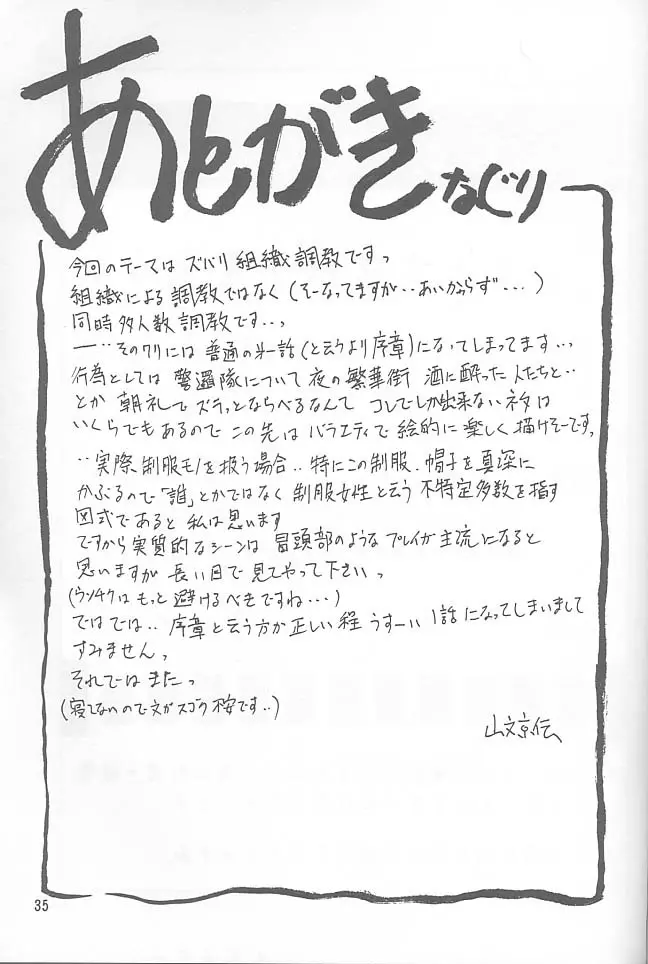 あとがき
なぐり
今回のテーマは ズバリ 組織調教です。
組織による 調教ではなく (そーなってますが‥あいかわらず‥‥)
同時多人数調教です‥。
一‥そのワリには 普通の第一話(と云うより序章)になってしまってます‥。
行為としては 警邏隊について 夜の繁華街 酒に酔った 人たちと‥
とか 朝礼で ズラっとならべるなんて コレでしか出来ないネタは
いくらでもあるので この先は バラエティで 絵的に 楽しく 描けそーです。
‥実際、制服モノを扱う場合‥特にこの制服、帽子を真深に
かぶるので「誰」とかではなく 制服女性と云う 不特定多数を指す
図式であると 私は思います
ですから実質的なシーンは 冒頭部のような プレイが主流になると
思いますが 長い目で 見てやって下さい。
(ウンチクは もっと 避けるべきですね‥‥)
ではでは‥ 序章と云う方が正しい程 うすーいい 1話になってしまいまして
すみません。
それでは また。
(寝てないので文がスゴク不安です‥)
山文京伝
35